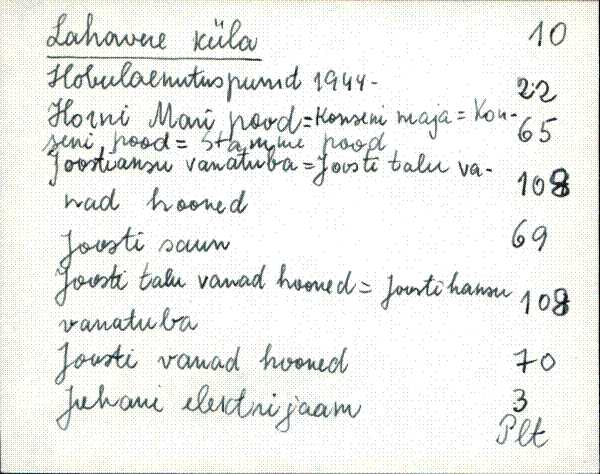 Lahavere küla 10
Hobulaenutuspunkt 1944- 22
Horni Mari pood = Konseni maja = Kon-
seni pood = Stamme pood 65
Joostihansu vanatuba = Joosti talu va-
nad hooned 108
Joosti saun 69
Joosti talu vanad hooned = Joostihansu
vanatuba 108
Joosti vanad hooned 70
Juhani elektrijaam 3
Plt